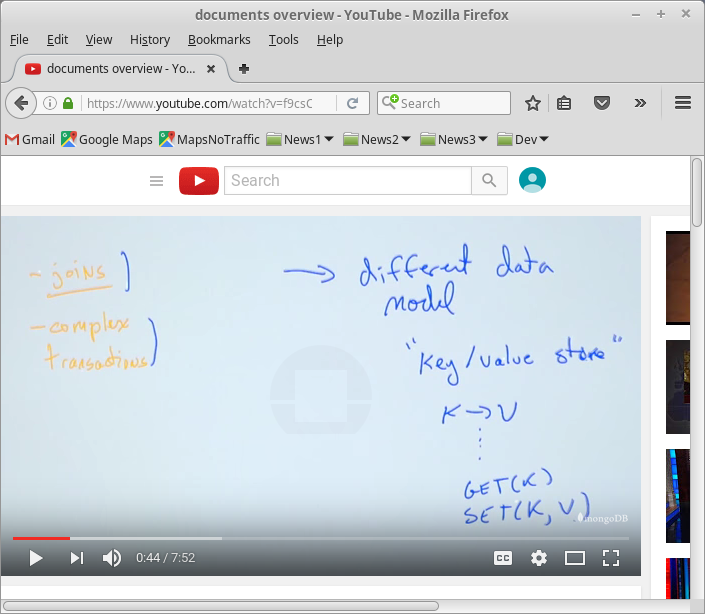 documents overview - YouTube - Mozilla Firefox
File Edit View History Bookmarks Tools Help
documents overview - Yo...
https://www.youtube.com/watch?v=f9csC
Search
Gmail Google Maps MapsNoTraffic News1 News2 News3 Dev
Search
- joins
- complex
transactions
→ different data
model
"key/value store"
K → V
GET(K)
SET(K, V)
mongoDB
0:44 / 7:52
CC